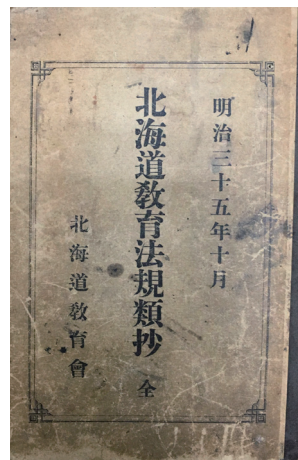 明治三十五年十月
北海道敎育法規類抄 全
北海道敎育會